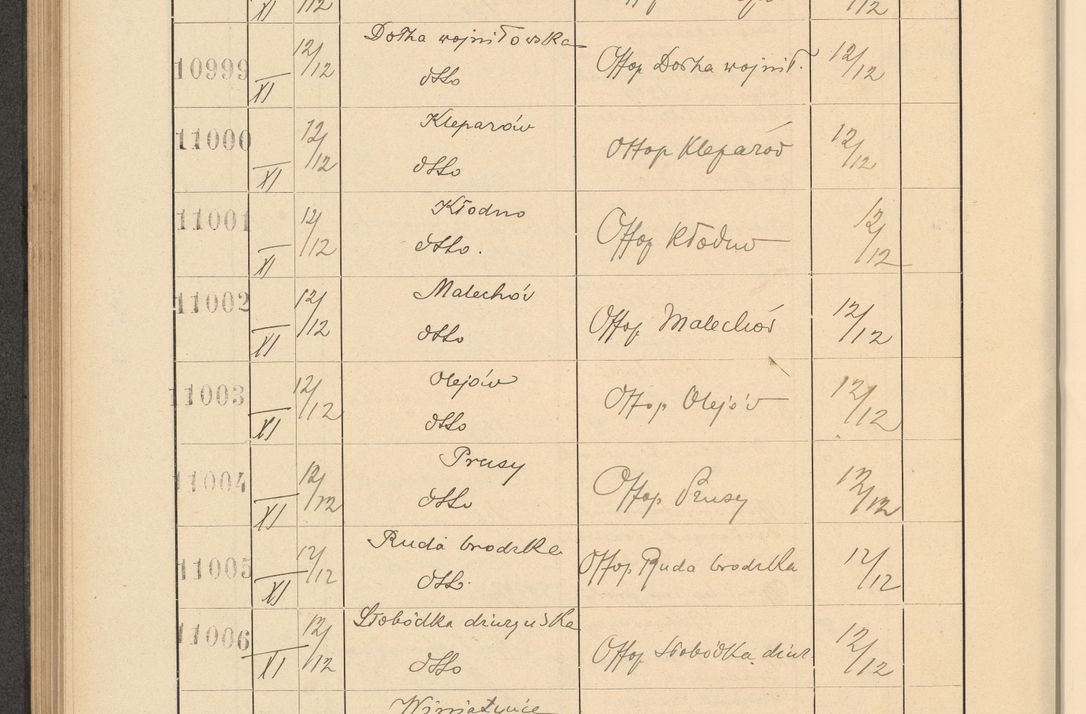 10999 XI 12/12 Dołha wojniłowska Ottop Dołha wojnił. 12/12
dtto
11000 XI 12/12 Kleparów Ottop Kleparów 12/12
dtto
11001 XI 12/12 Kłodno Ottop Kłodno 12/12
dtto.
11002 XI 12/12 Malechów Ottop Malechów 12/12
dtto
11003 XI 12/12 Olejów Ottop Olejów 12/12
dtto
11004 XI 12/12 Prusy Ottop Prusy 12/12
dtto
11005 XI 12/12 Ruda brodzka Ottop Ruda brodzka 12/12
dtto.
11006 XI 12/12 Słobódka dżuryńska Ottop Słobódka dżur. 12/12
dtto
Winiatyńce